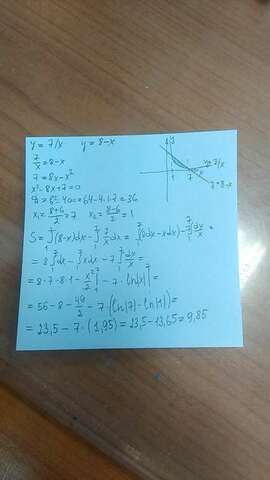 y = 7/x    y = 8-x
7/x = 8-x
7 = 8x-x²
x²-8x+7=0
D = b²-4ac = 64-4·1·7=36
x₁ = (8+6)/2 = 7    x₂ = (8-6)/2 = 1
S = ∫₁⁷(8-x)dx - ∫₁⁷ 7/x dx = ∫₁⁷(8dx-xdx) - 7∫₁⁷ dx/x =
= 8∫₁⁷dx - ∫₁⁷xdx - 7∫₁⁷ dx/x =
= 8·7-8·1 - x²/2 |₁⁷ - 7·ln|x| |₁⁷ =
= 56-8- 49/2 - 7·(ln|7|-ln|1|) =
= 23,5 - 7·(1,95) = 23,5-13,65 = 9,85
y
y=7/x
1
7
x
y=8-x